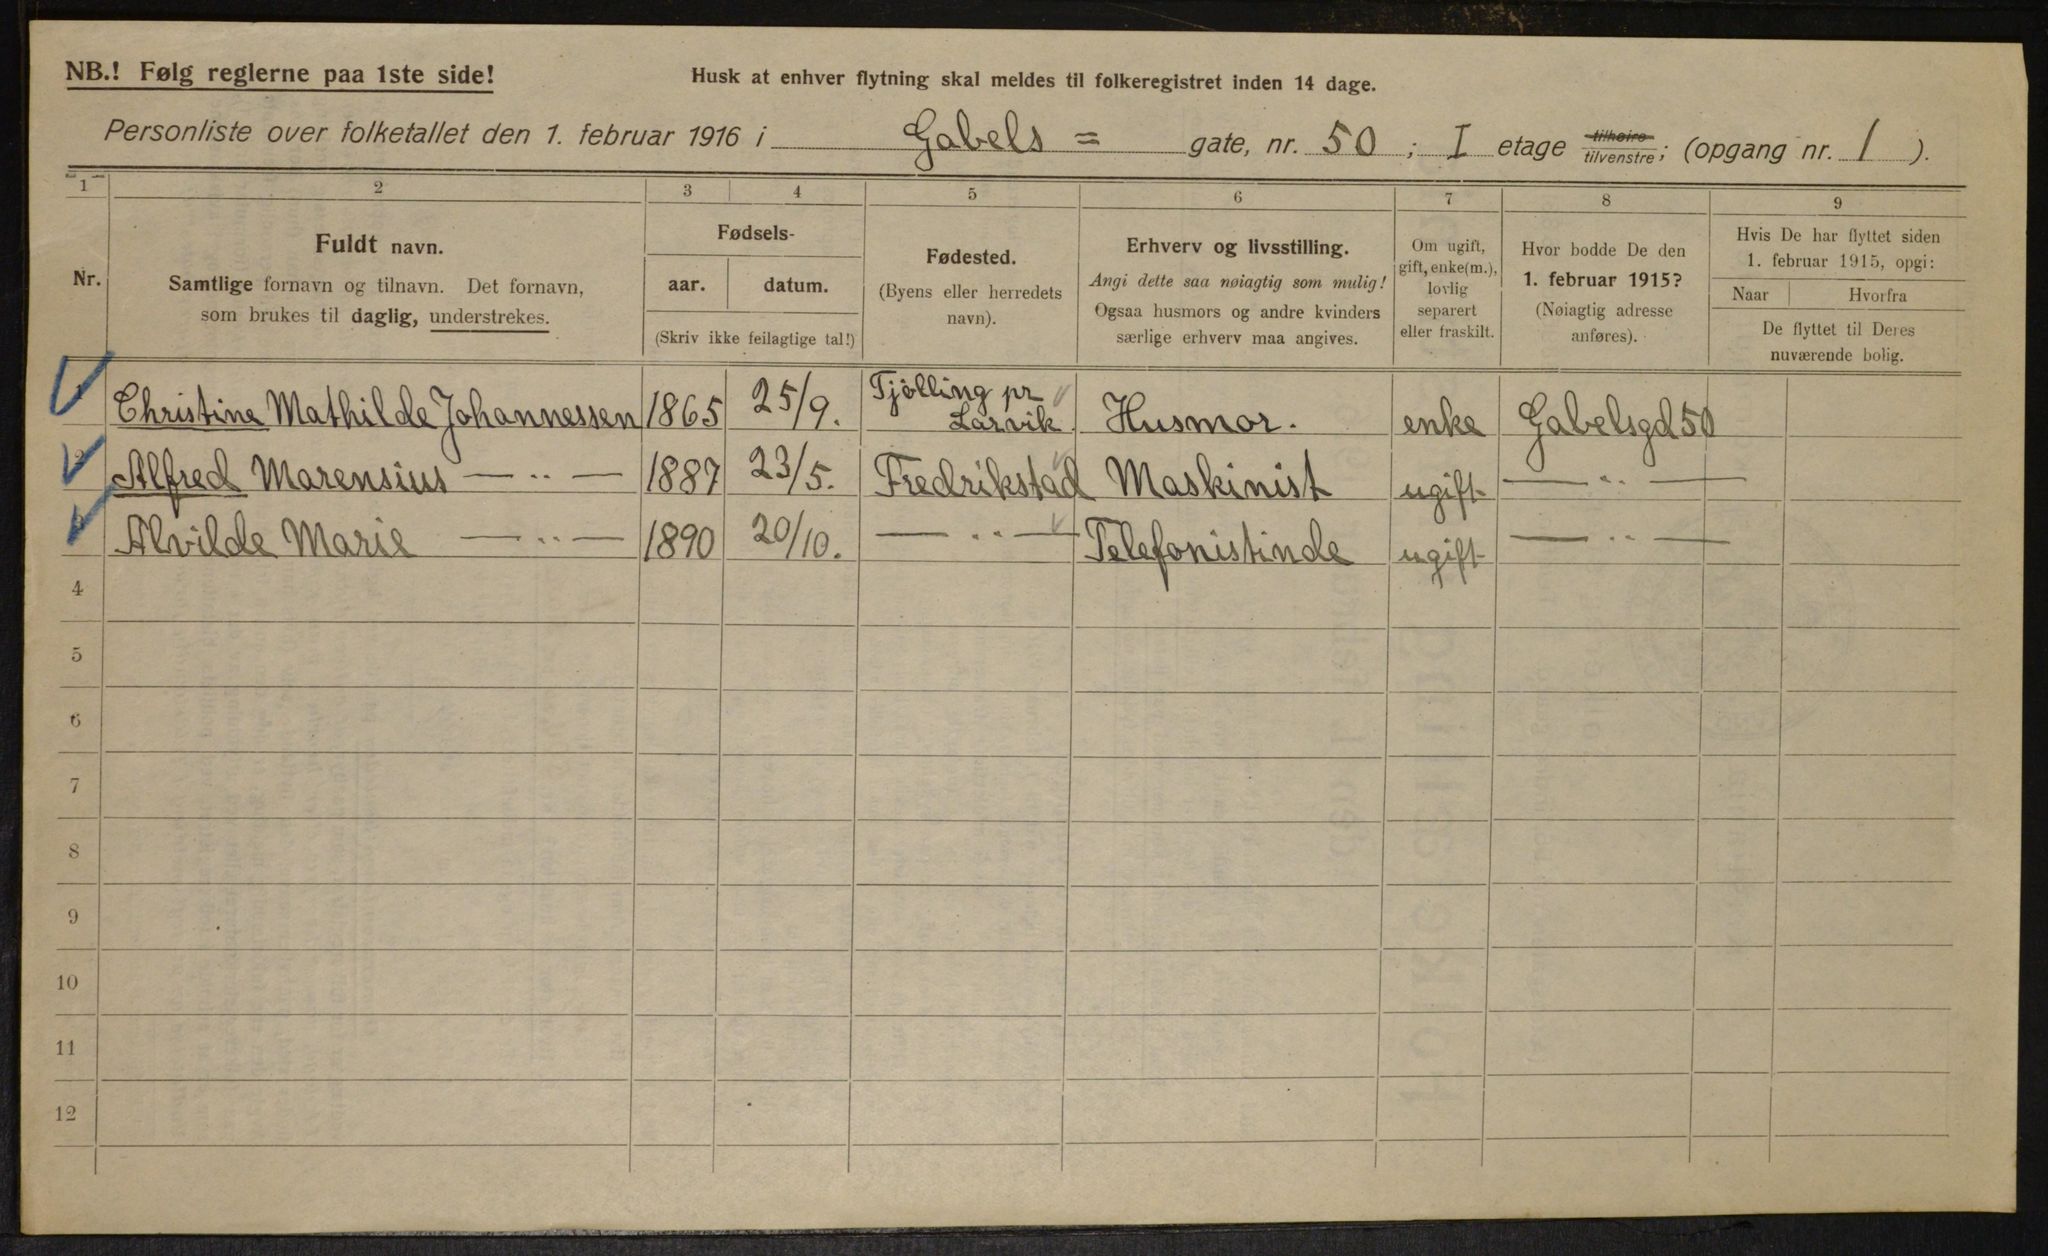 NB.! Følg reglerne paa 1ste side!
Husk at enhver flytning skal meldes til folkeregistret inden 14 dage.
Personliste over folketallet den 1. februar 1916 i Gabels = gate, nr. 50 ; I etage tilhøire tilvenstre; (opgang nr. 1 ).
1 2 3 4 5 6 7 8 9
Nr.
Fuldt navn.
Samtlige fornavn og tilnavn. Det fornavn,
som brukes til daglig, understrekes.
Fødsels-
aar. datum.
(Skriv ikke feilagtige tal!)
Fødested.
(Byens eller herredets
navn).
Erhverv og livsstilling.
Angi dette saa nøiagtig som mulig!
Ogsaa husmors og andre kvinders
særlige erhverv maa angives.
Om ugift,
gift, enke(m.),
lovlig
separert
eller fraskilt.
Hvor bodde De den
1. februar 1915?
(Nøiagtig adresse
anføres).
Hvis De har flyttet siden
1. februar 1915, opgi:
Naar Hvorfra
De flyttet til Deres
nuværende bolig.
1 Christine Mathilde Johannessen 1865 25/9. Tjölling pr Larvik Husmor. enke Gabelsgd 50
2 Alfred Marensius — „ — 1887 23/5. Fredrikstad Maskinist ugift — „ —
3 Alvilde Marie — „ — 1890 20/10. — „ — Telefonistinde ugift — „ —
4
5
6
7
8
9
10
11
12